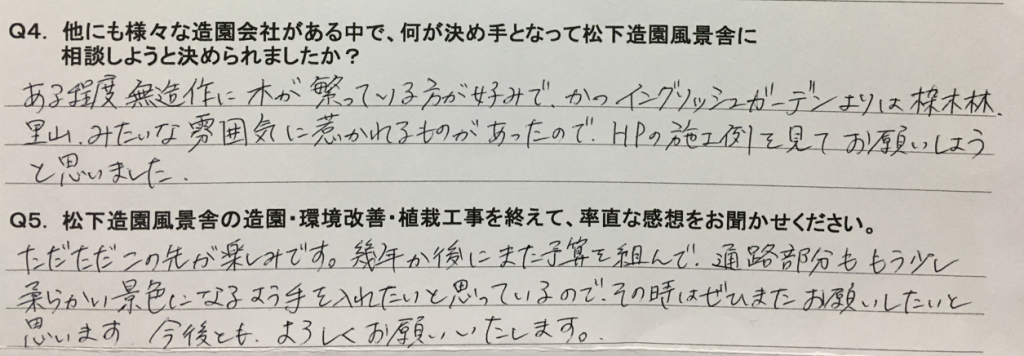 Q4. 他にも様々な造園会社がある中で、何が決め手となって松下造園風景舎に
相談しようと決められましたか？
ある程度無造作に木が繁っている方が好みで、かつイングリッシュガーデンよりは楳木林、
里山、みたいな雰囲気に惹かれるものがあったので、HPの施工例を見てお願いしよう
と思いました。
Q5. 松下造園風景舎の造園・環境改善・植栽工事を終えて、率直な感想をお聞かせください。
ただただこの先が楽しみです。幾年か後にまた予算を組んで、通路部分ももう少し
柔らかい景色になるよう手を入れたいと思っているので、その時はぜひまたお願いしたいと
思います。今後とも、よろしくお願いいたします。